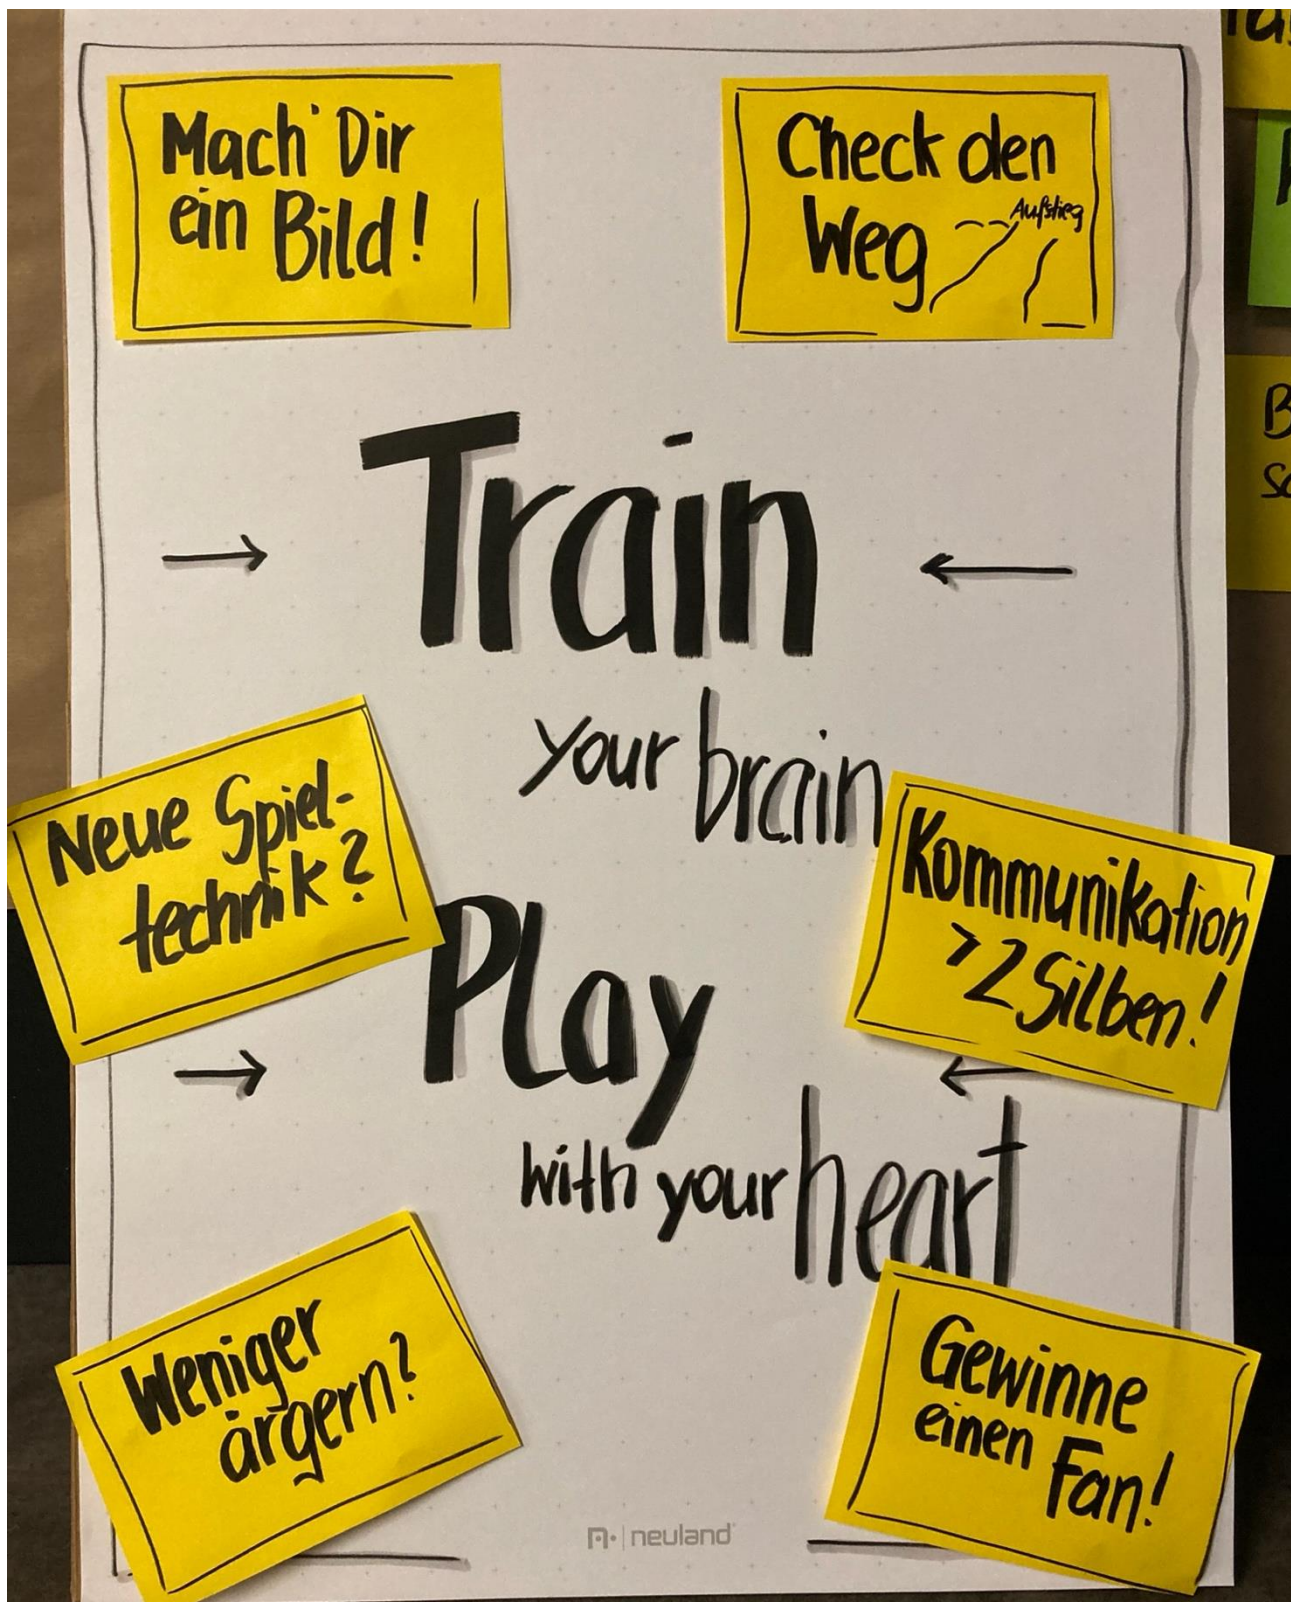 Mach' Dir
ein Bild!
Check den
Weg
Aufstieg
Train
your brain
Neue Spiel-
technik?
Kommunikation
>2 Silben!
Play
with your heart
Weniger
ärgern?
Gewinne
einen Fan!
neuland